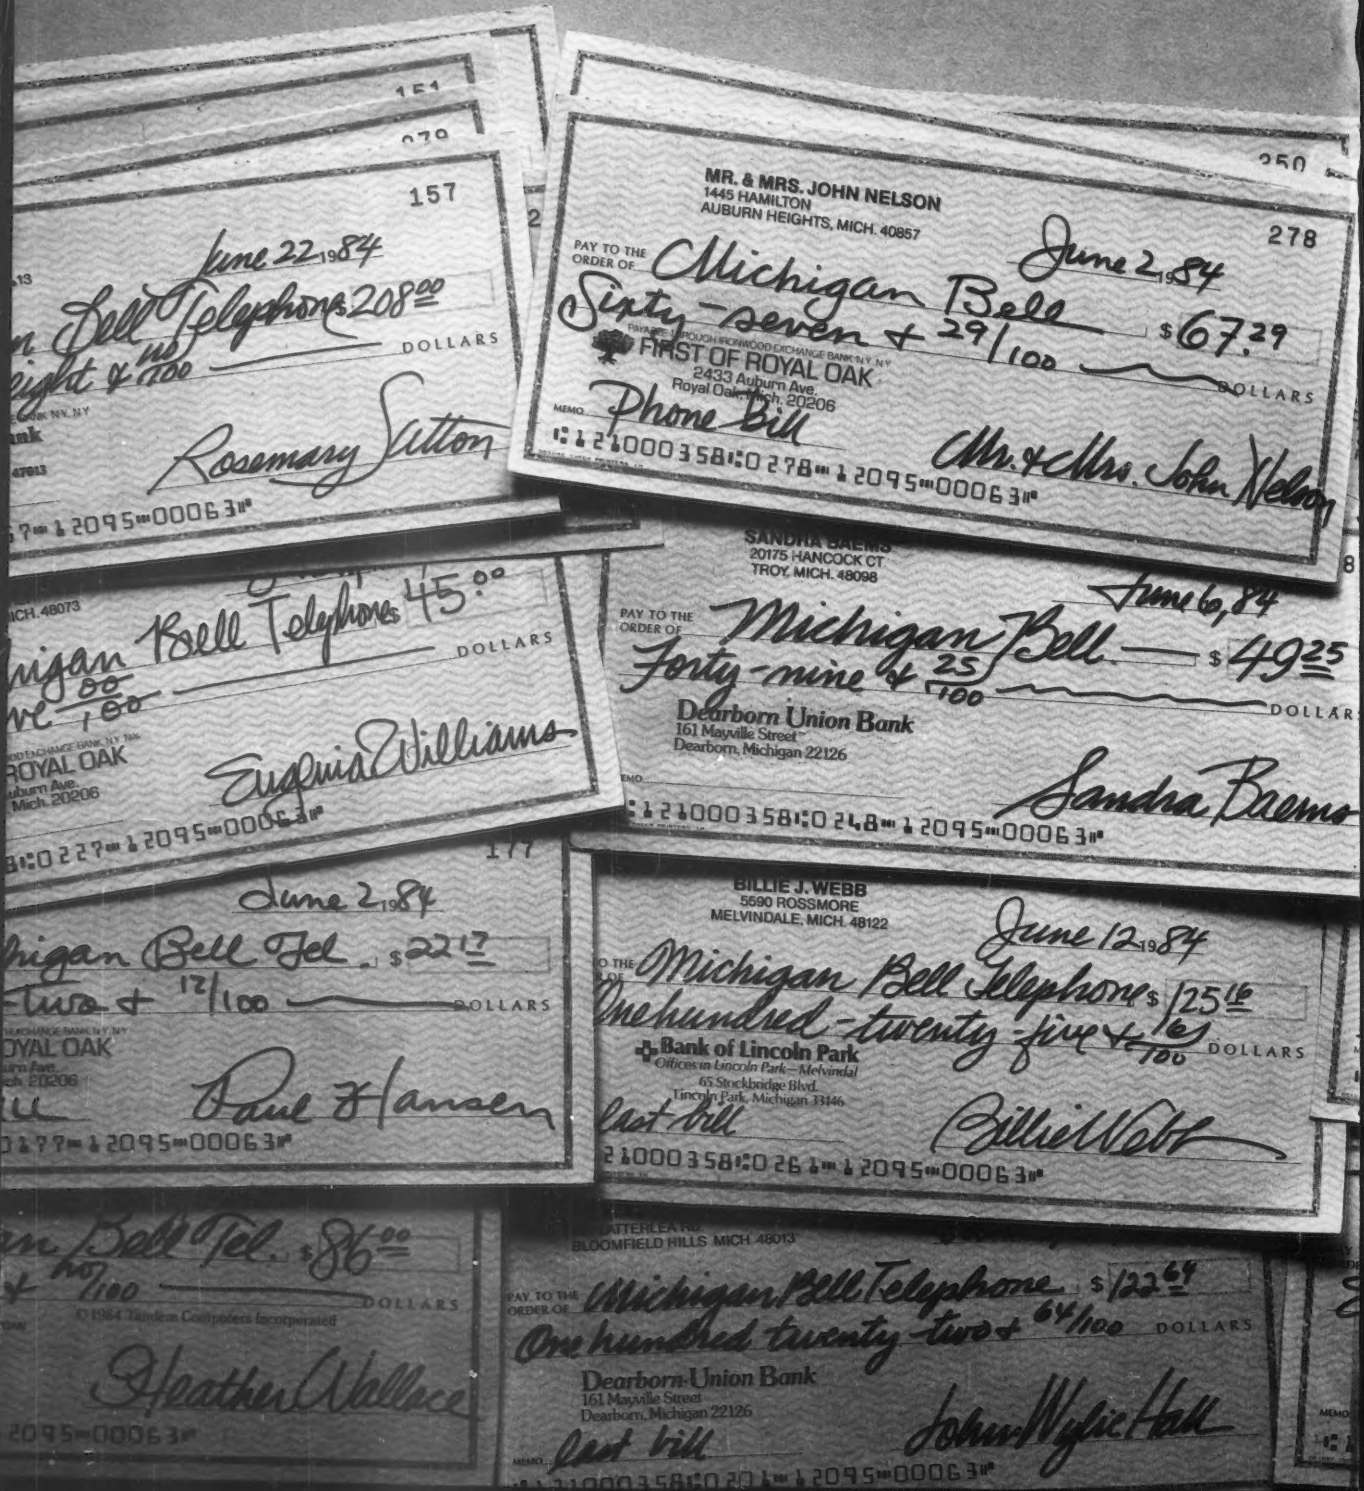 151
079
157
June 22 1984
Bell Telephone $ 208 00
eight & no/100 DOLLARS
Rosemary Sutton
47013
7⑈12095⑈00063⑈
250
MR. & MRS. JOHN NELSON
1445 HAMILTON
AUBURN HEIGHTS, MICH. 40857
278
June 2, 1984
PAY TO THE
ORDER OF Michigan Bell $ 67.29
Sixty-seven & 29/100 DOLLARS
PAYABLE THROUGH IRONWOOD EXCHANGE BANK N.Y. N.Y
FIRST OF ROYAL OAK
2433 Auburn Ave.
Royal Oak, Mich. 20206
MEMO Phone bill
Mr. & Mrs. John Nelson
⑆121000358⑆0278⑈12095⑈00063⑈
MICH. 48073
Bell Telephone $ 45.00
00/100 DOLLARS
EXCHANGE BANK N.Y.
ROYAL OAK
Auburn Ave.
Mich. 20206
Eugenia Williams
0227⑈12095⑈00063⑈
SANDRA BAEMS
20175 HANCOCK CT
TROY, MICH. 48098
June 6, 84
PAY TO THE
ORDER OF Michigan Bell $ 49 25
Forty-nine & 25/100 DOLLAR
Dearborn Union Bank
161 Mayville Street
Dearborn, Michigan 22126
MEMO
Sandra Baems
⑆121000358⑆0248⑈12095⑈00063⑈
177
June 2, 1984
Bell Tel. $ 22 17
-two & 12/100 DOLLARS
EXCHANGE BANK N.Y. N.Y
ROYAL OAK
Ave.
20206
Paul Hansen
0177⑈12095⑈00063⑈
BILLIE J. WEBB
5590 ROSSMORE
MELVINDALE, MICH. 48122
June 12 1984
TO THE
OF Michigan Bell Telephone $ 125 16
One hundred-twenty-five & 16/100 DOLLARS
Bank of Lincoln Park
Offices in Lincoln Park—Melvindal
65 Stockbridge Blvd.
Lincoln Park, Michigan 33146
last bill
Billie Webb
21000358⑆0261⑈12095⑈00063⑈
Bell Tel. $ 86 00
& no/100 DOLLARS
© 1984 Tandem Computers Incorporated
Heather Wallace
2095⑈00063⑈
BLOOMFIELD HILLS MICH 48013
PAY TO THE
ORDER OF Michigan Bell Telephone $ 122 64
One hundred twenty-two & 64/100 DOLLARS
Dearborn Union Bank
161 Mayville Street
Dearborn, Michigan 22126
MEMO last bill
John Wylie Hall
121000358⑆0201⑈12095⑈00063⑈
MEMO